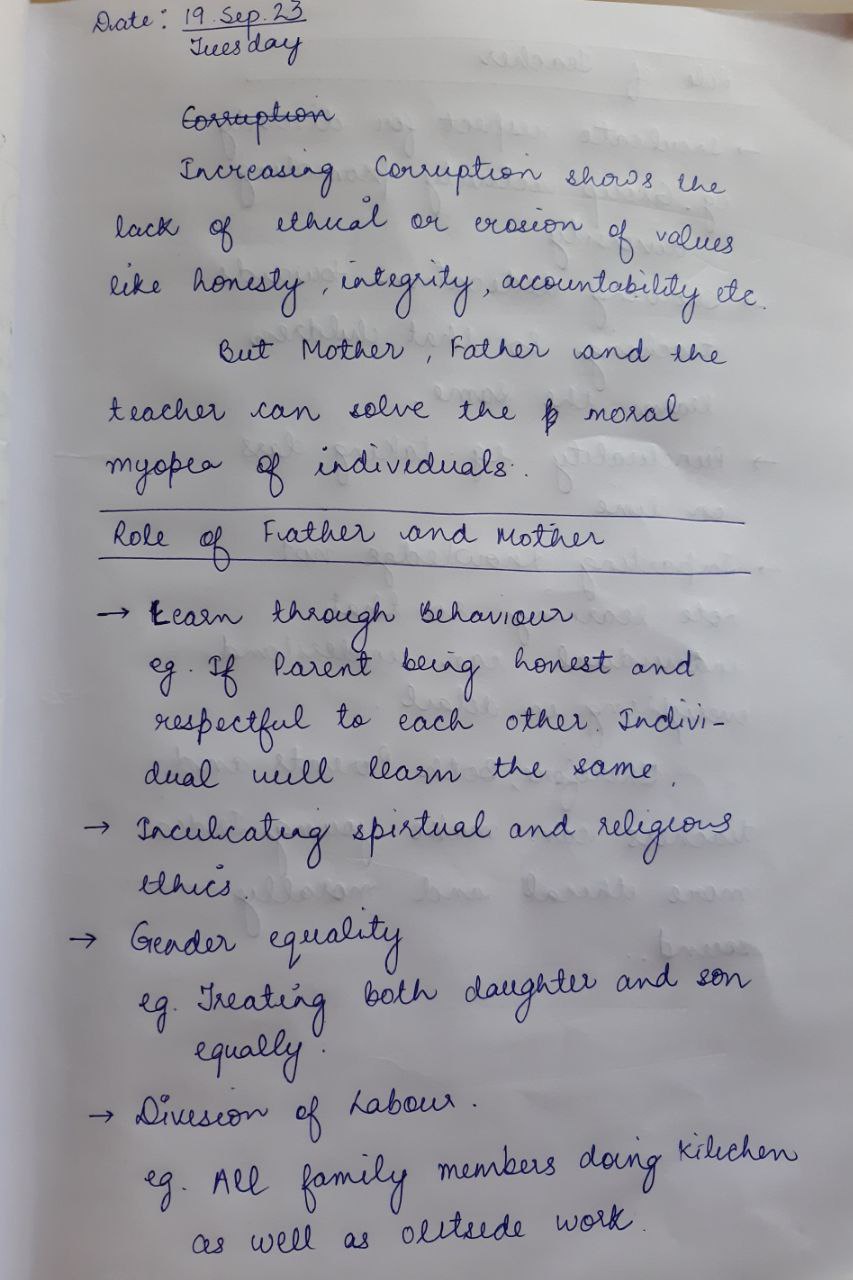 Date: 19. Sep. 23
Tuesday
Corruption
Increasing Corruption shows the
lack of ethical or erosion of values
like honesty, integrity, accountability etc.
But Mother, Father and the
teacher can solve the moral
myopea of individuals.
Role of Father and Mother
→ Learn through Behaviour
eg. If Parent being honest and
respectful to each other. Indivi-
dual will learn the same.
→ Inculcating spirtual and religious
ethics.
→ Gender equality
eg. Treating both daughter and son
equally.
→ Division of Labour.
eg. All family members doing kitchen
as well as outside work.